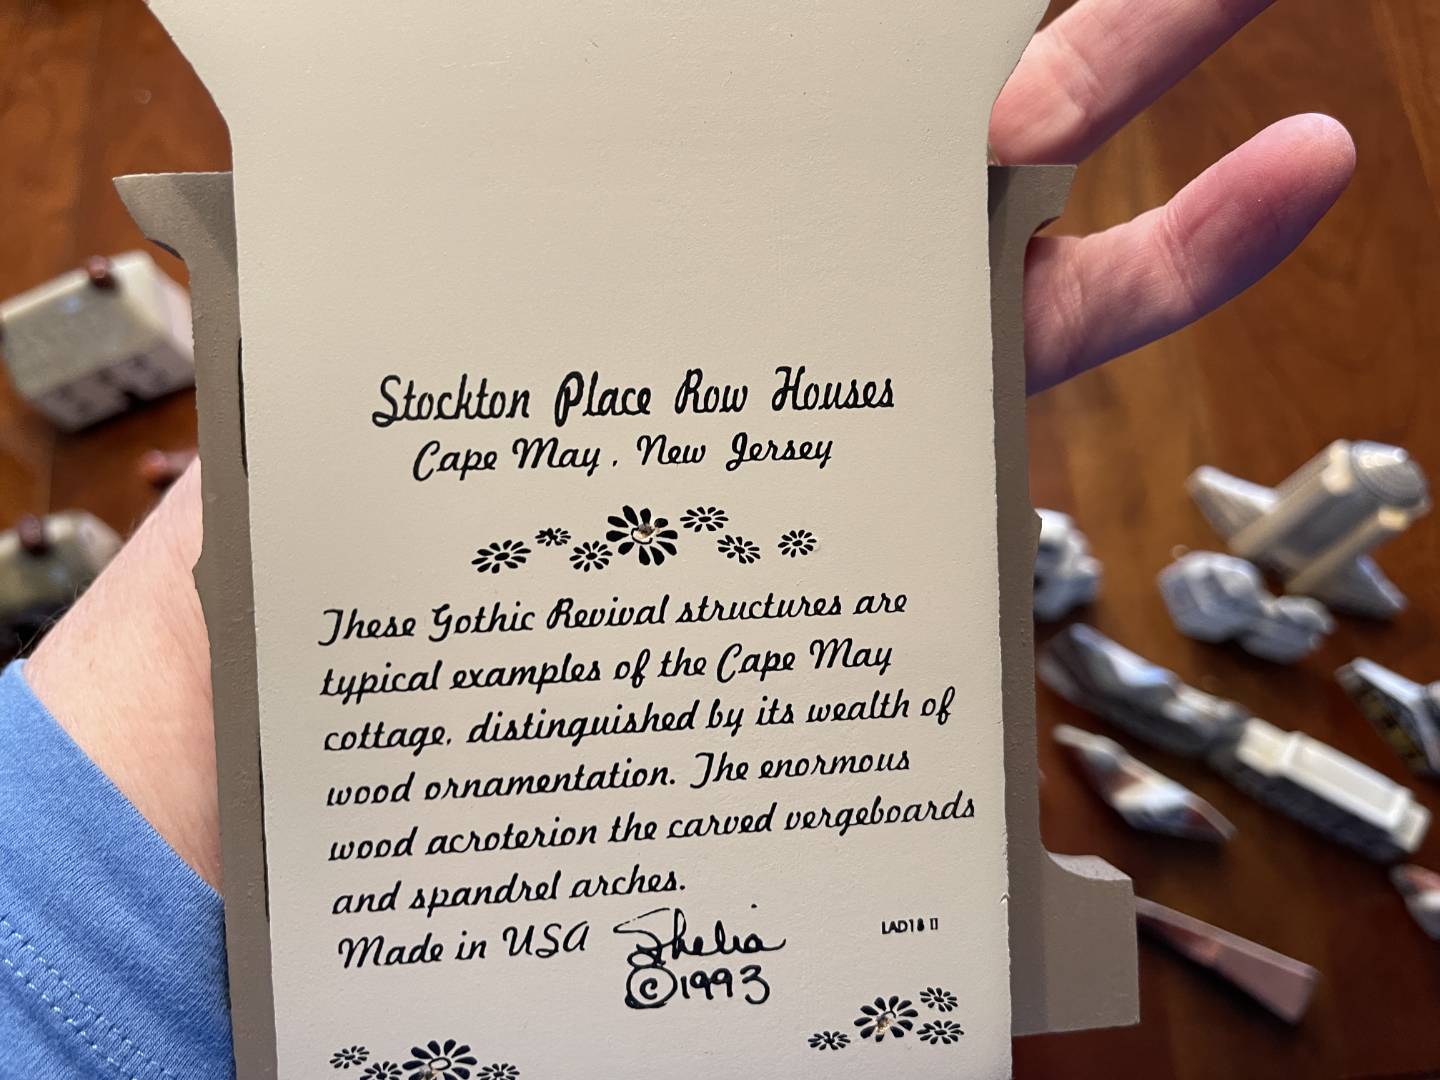 Stockton Place Row Houses
Cape May, New Jersey
These Gothic Revival structures are
typical examples of the Cape May
cottage, distinguished by its wealth of
wood ornamentation. The enormous
wood acroterion the carved vergeboards
and spandrel arches.
Made in USA Shelia LAD18 II
©1993